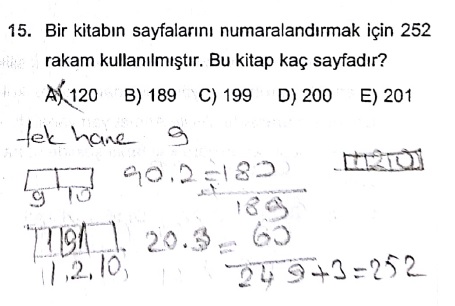 15. Bir kitabın sayfalarını numaralandırmak için 252
rakam kullanılmıştır. Bu kitap kaç sayfadır?
A) 120 B) 189 C) 199 D) 200 E) 201
tek hane 9
9 10
90.2=180
189
20.3=60
249+3=252
1.2.10,